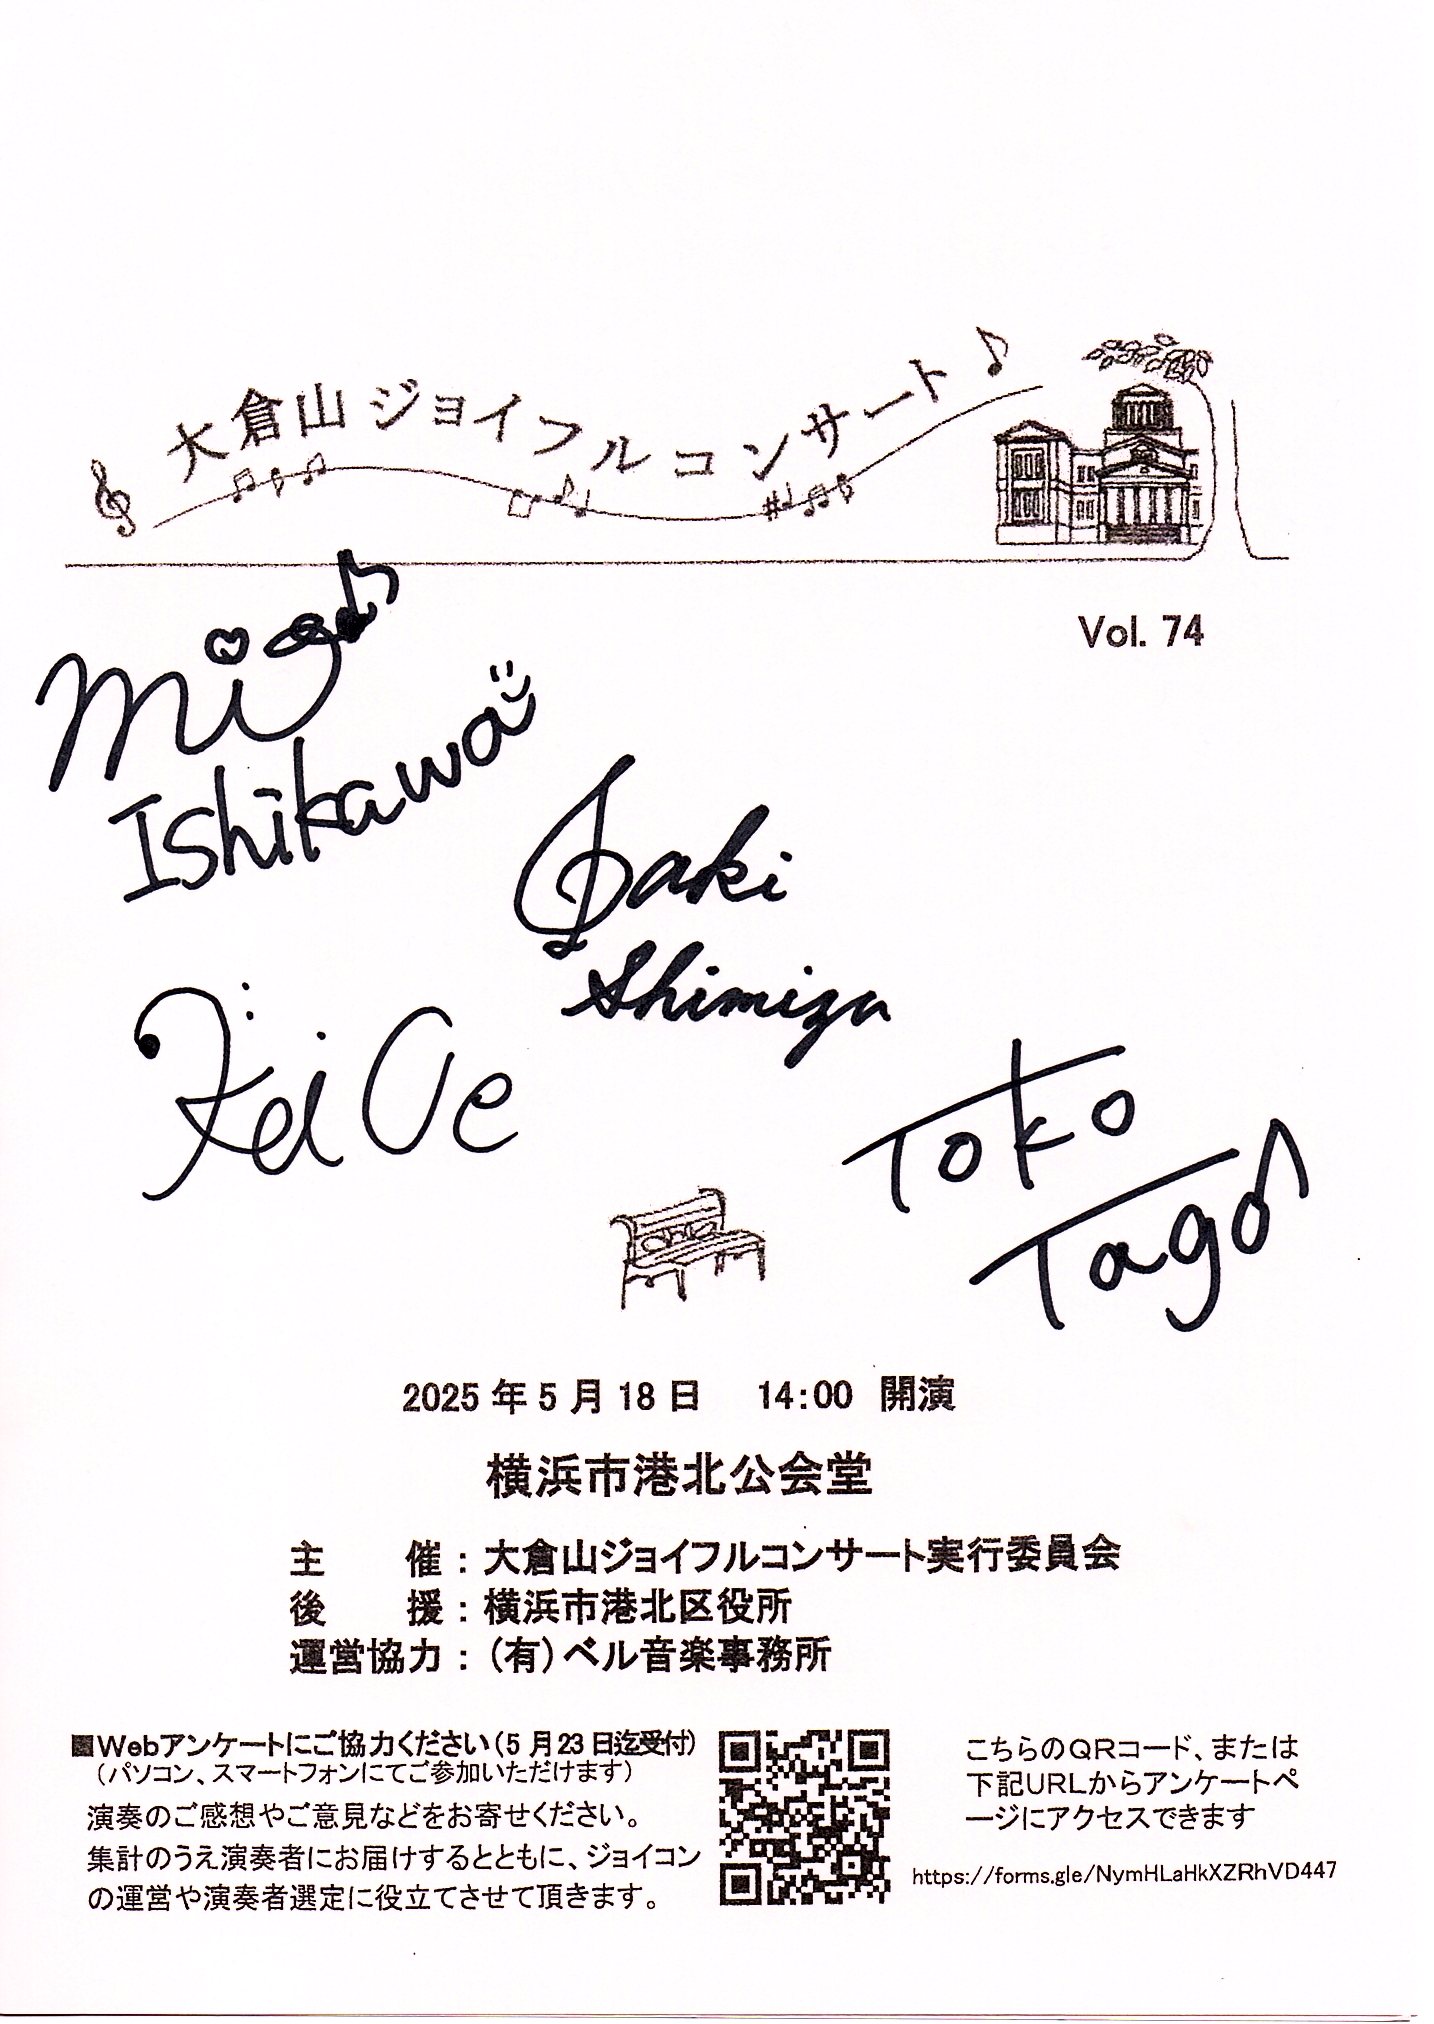 大倉山ジョイフルコンサート
Vol. 74
Ishikawa
Saki
Shimizu
Kei Oe
Toko
Tago
2025年5月18日 14:00 開演
横浜市港北公会堂
主 催：大倉山ジョイフルコンサート実行委員会
後 援：横浜市港北区役所
運営協力：（有）ベル音楽事務所
■Webアンケートにご協力ください（5月23日迄受付）
（パソコン、スマートフォンにてご参加いただけます）
演奏のご感想やご意見などをお寄せください。
集計のうえ演奏者にお届けするとともに、ジョイコン
の運営や演奏者選定に役立てさせて頂きます。
こちらのQRコード、または
下記URLからアンケートペ
ージにアクセスできます
https://forms.gle/NymHLaHkXZRhVD447